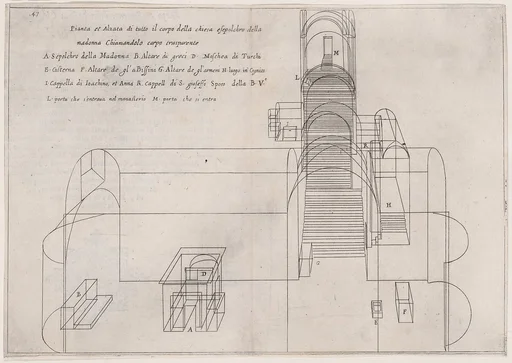 47
Pianta et Alzata di tutto il corpo della chiesa e sepolchro della
madonna Chiamandolo corpo trasparente
A Sepolchro della Madonna B. Altare di greci D. Moschea di Turchi
E. Cisterna F. Altare de gl'aBissini G. Altare de gl'armeni H. luogo
I. Cappella di Ioachino, et Anna K. Cappell. di S. gioseffe Sposo della B.V.
L. porta che s'entrava nel monasterio M. porta che si entra
M
L
K
I
H
G
D
B
A
E
F